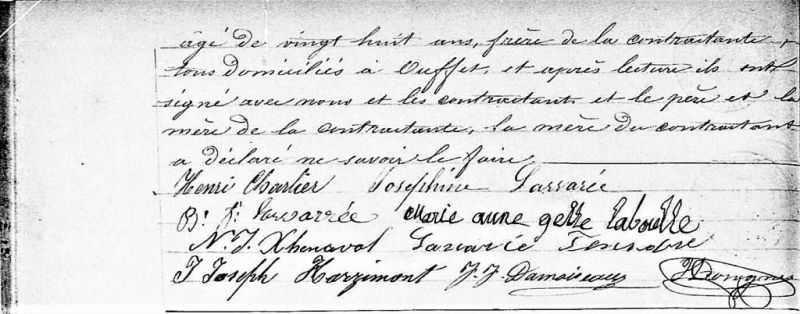 âgé de vingt huit ans, frère de la contractante,
tous domiciliés à Ouffet, et après lecture ils ont
signé avec nous et les contractants et le père et la
mère de la contractante, la mère du contractant
a déclaré ne savoir le faire.
Henri Charlier Josephine Lassarée
B. J. Lassarrée Marie anne
N. J. Xhenaval
J Joseph Harzimont J. J. Damoiseaux